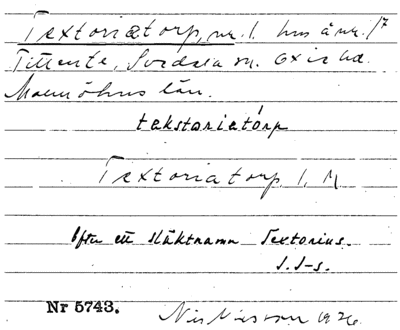 Textoriatorp, nr. 1. hus å nr. 17
Tittente, Svedala sn. Oxie hd.
Malmöhus län.
tekstɷriatɷ́rp
Textoriatorp 1. M
Efter ett släktnamn Textorius.
J. S-s.
Nr 5743. Nils Nilsson 1926